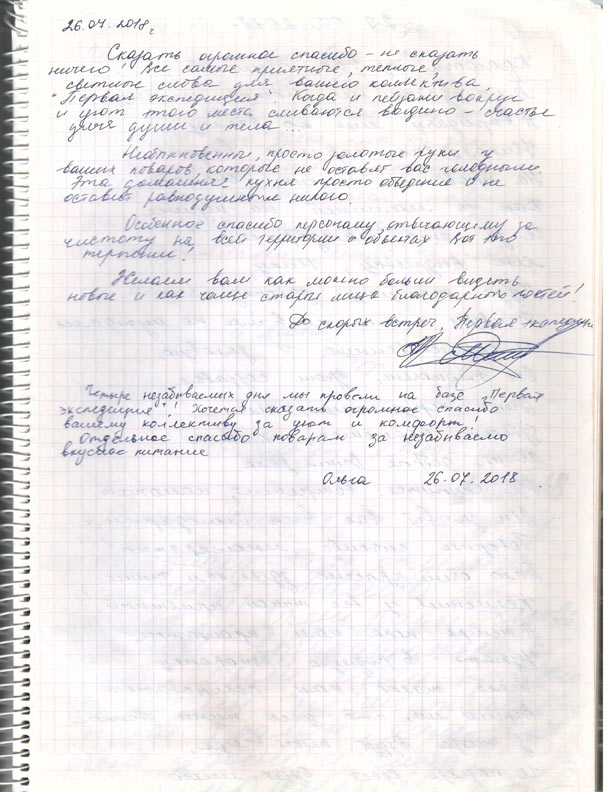 26.07.2018г
Сказать огромное спасибо - не сказать
ничего! Все самые приятные, теплые,
светлые слова для вашего коллектива
"Первая экспедиция". Когда и пейзажи вокруг
и уют этого места сливаются воедино - счастье
для души и тела...
Необыкновенные, просто золотые руки у
ваших поваров, которые не оставят вас голодными
Эта домашняя кухня просто объедение и не
оставит равнодушным никого.
Особенное спасибо персоналу, отвечающему за
чистоту на всей территории и объектах. Вот это
терпение!
Желаем вам как можно больше видеть
новые и как чаще старые лица благодарных гостей!
До скорых встреч, Первая экспедиция
Четыре незабываемых дня мы провели на базе „Первая
экспедиция"! Хочется сказать огромное спасибо
вашему коллективу за уют и комфорт!
Отдельное спасибо поварам за незабываемо
вкусное питание
Ольга 26.07.2018